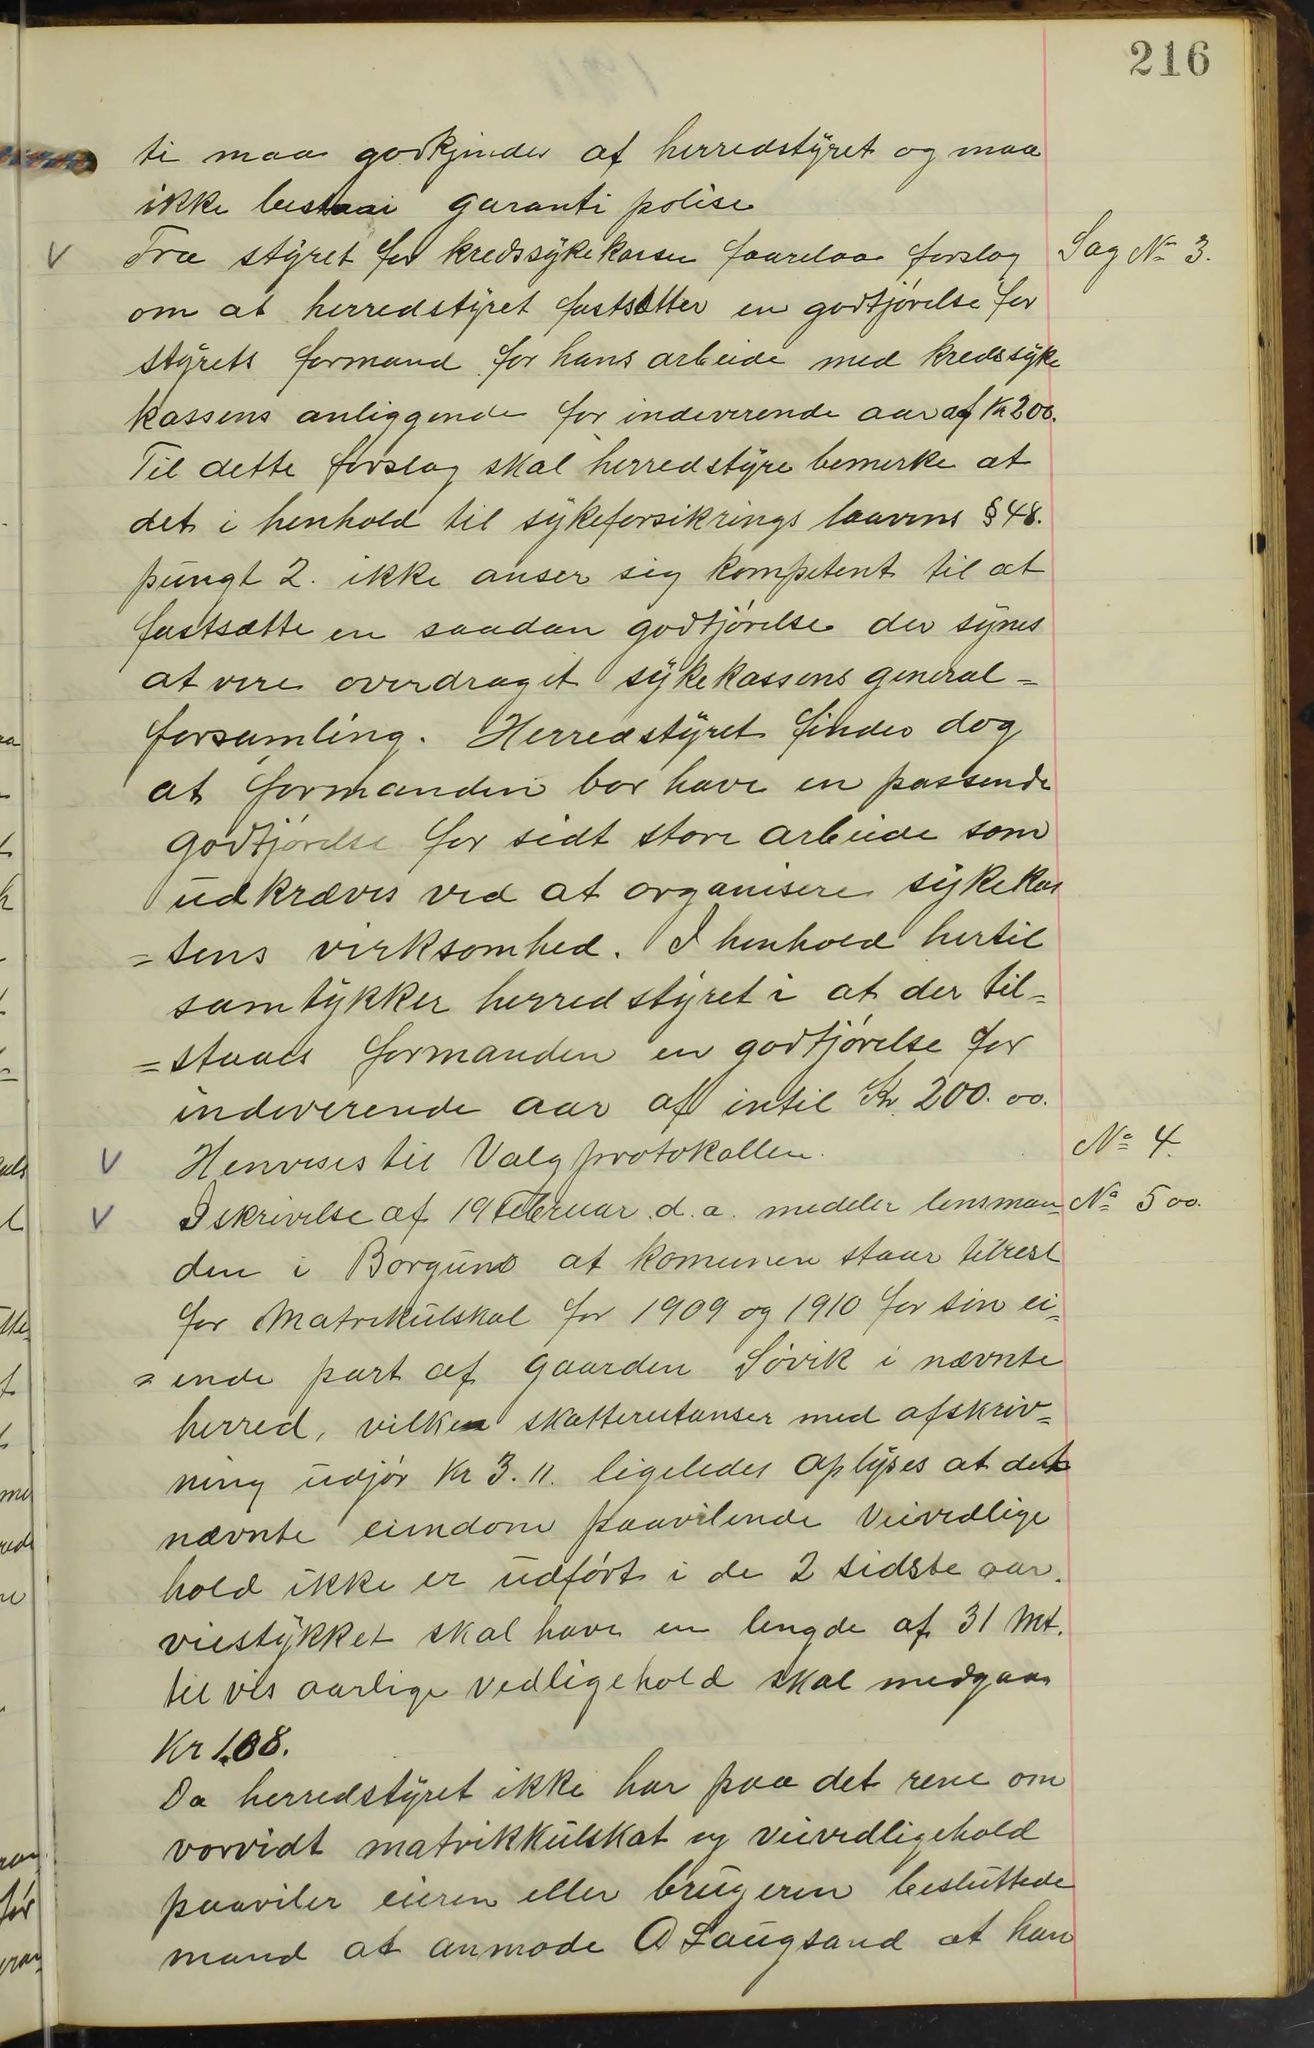 216
ti maa godkjendes af herredstyret og maa
ikke bestaai garanti polise
Fra styret for kredssykekassen foorelaa forslag
Sag No 3.
om at herredstyret fastsetter en godtjørelse for
styrets formand for hans arbeide med kredssyke
kassens anliggende for indeverende aar af Kr 200.
Til dette forslag skal herredstyre bemerke at
det i henhold til sykeforsikrings laavens § 48.
pungt 2. ikke anser sig kompetent til at
fastsætte en saadan godtjørelse der synes
at vere overdraget sykekassens general=
forsamling. Herredstyret finder dog
at formanden bør have en passende
godtjørelse for sidt store arbeide som
udkræves ved at organisere sykekas
=sens virksomhed. I henhold hertil
samtykker herredstyret i at der til=
=staaes formanden en godtjørelse for
indeverende aar af intil Kr 200.00.
Henvises til Valgprotokollen.
No 4
I skrivelse af 19 Februar d.a. medeler lensman
No 5 00.
den i Borgund at komunen staar tilrest
for Matrikulskat for 1909 og 1910 for sin ei=
=ende part af gaarden Søvik i nævnte
herred, vilken skatterestanser med afskriv=
ning udjør Kr 3.11. ligeledes oplyses at det
nævnte eiendom paavilende Veivedlige
hold ikke er udført i de 2 sidste aar.
veistykket skal have en lengde af 31 Mt.
til vis aarlige vedligehold skal medgaa
Kr 1.08.
Da herredstyret ikke har paa det rene om
vorvidt matrikkulskat og veivedligehold
paaviler eieren eller brugeren besluttede
mand at anmode O Laugsand at han